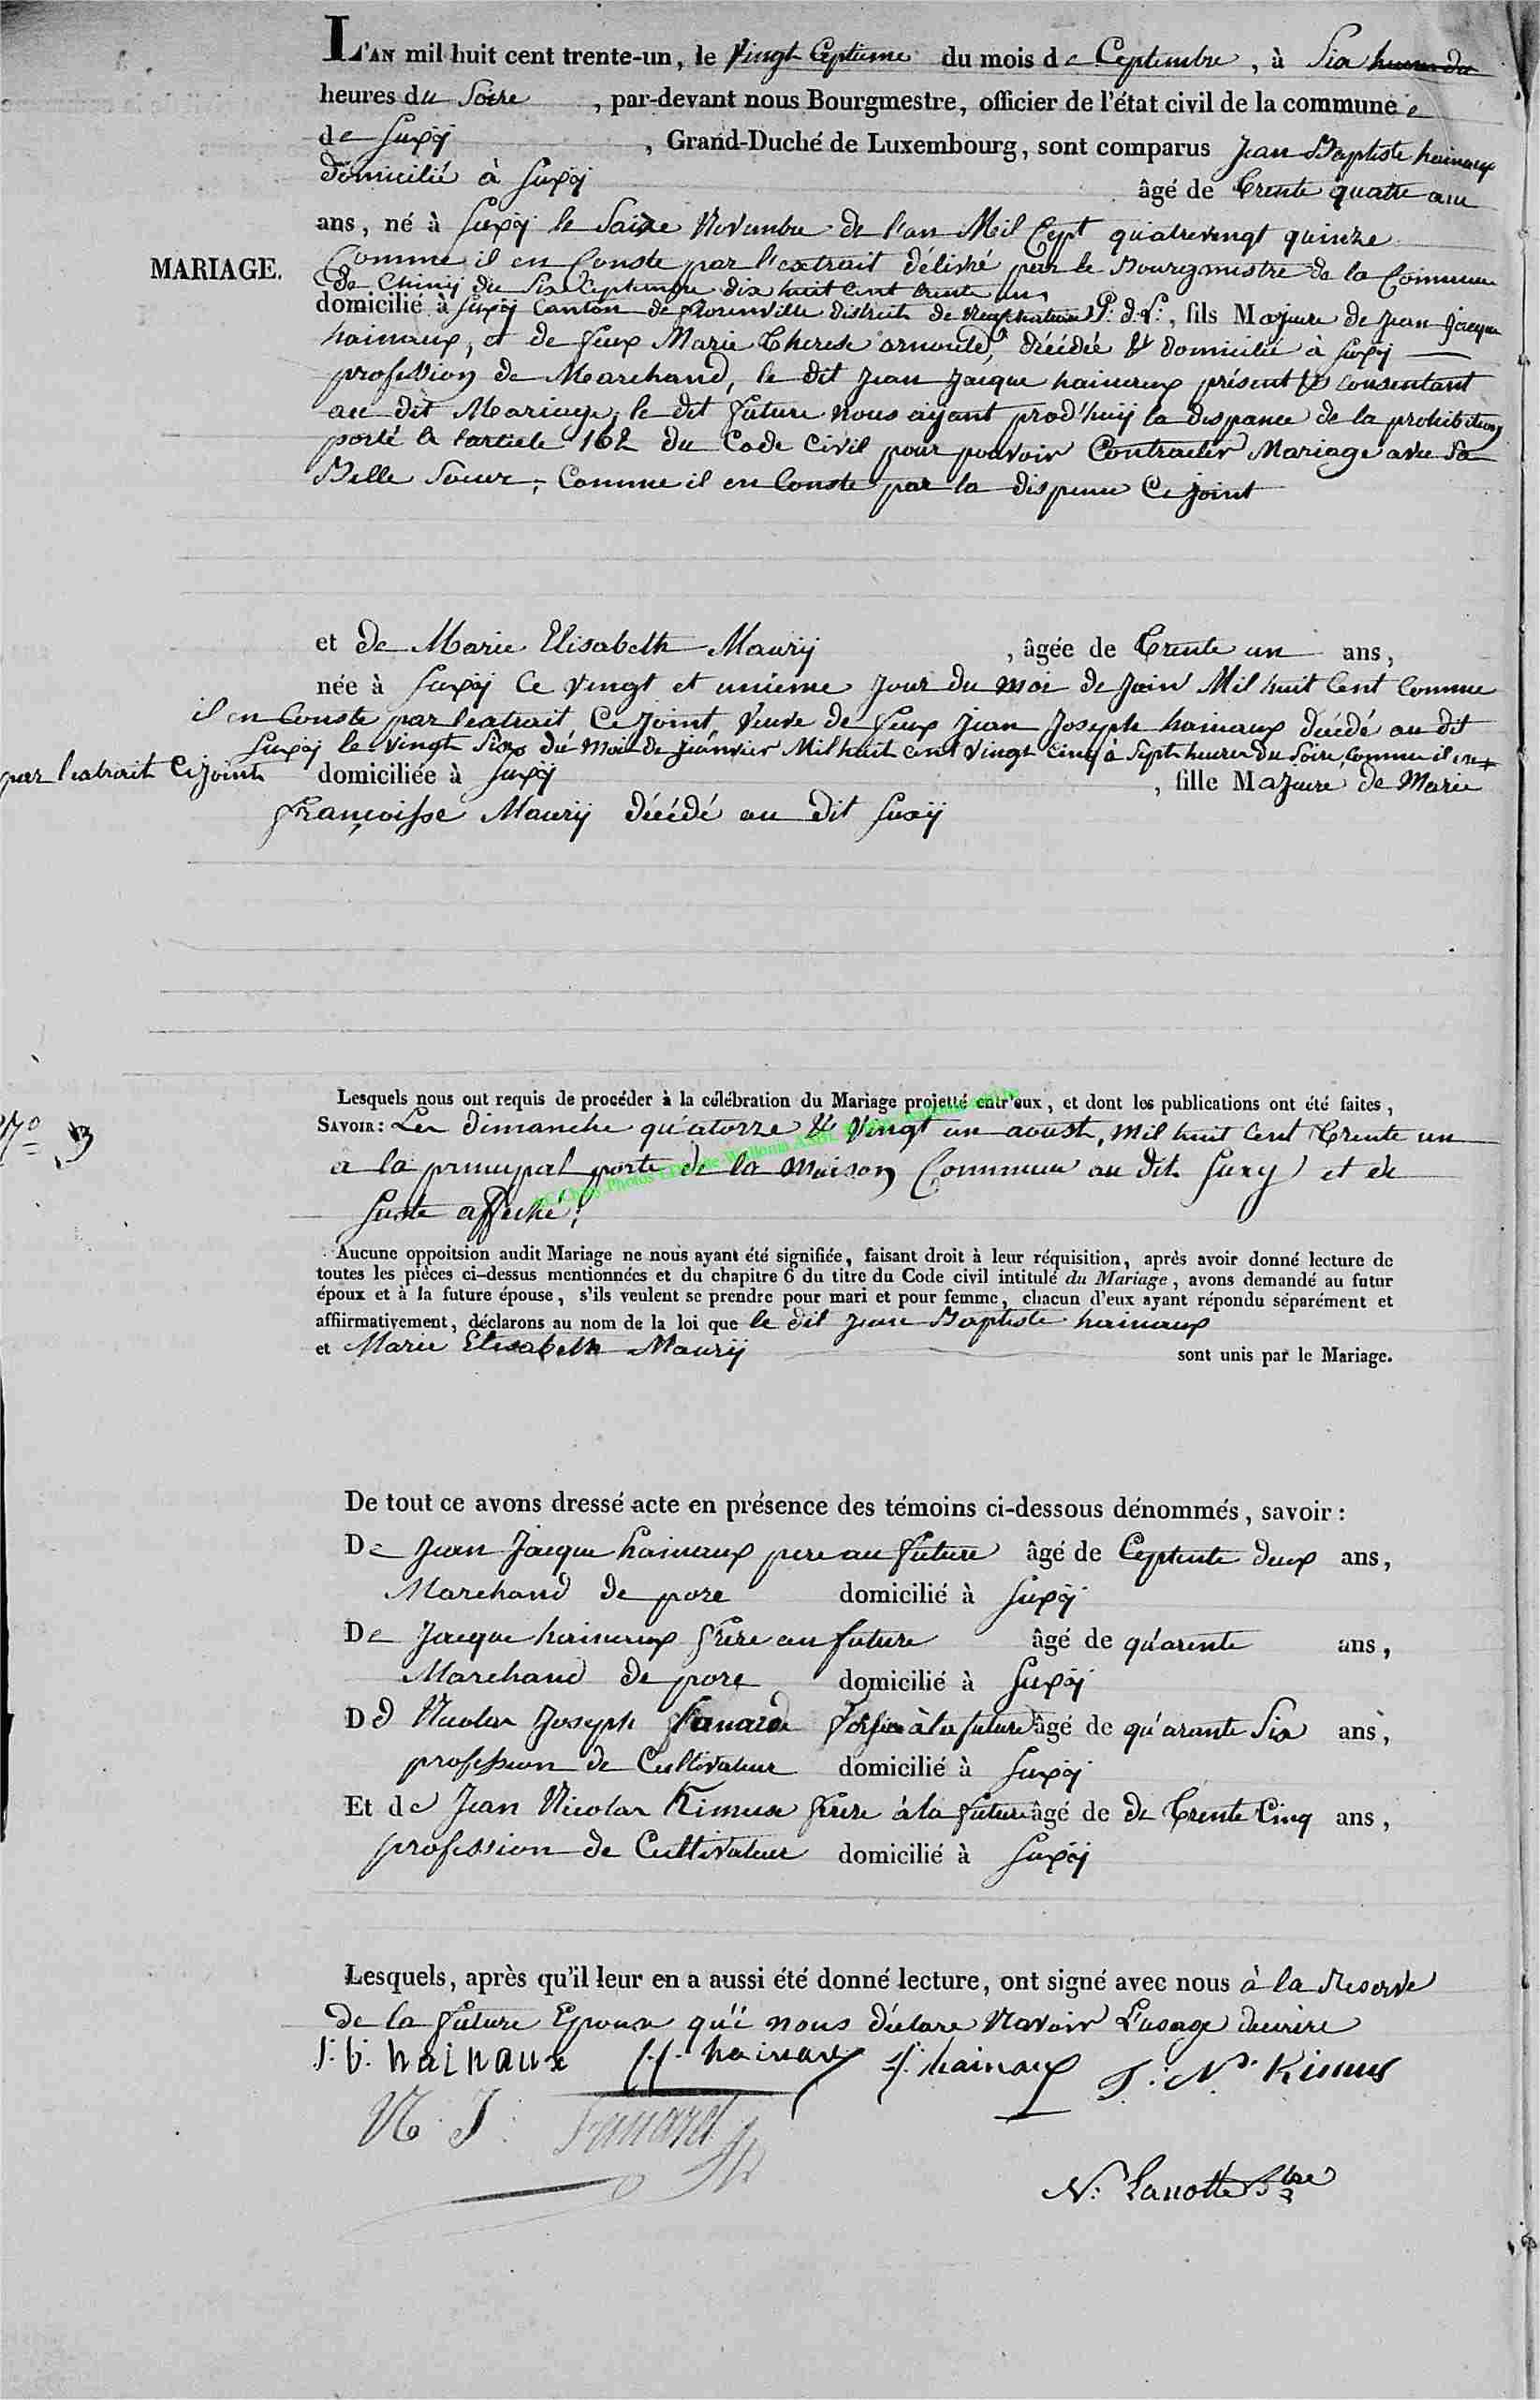 L'AN mil huit cent trente-un, le Vingt Ceptieme du mois de Ceptembre, à Six heures du
heures du Soire, par-devant nous Bourgmestre, officier de l'état civil de la commune
de Suxÿ, Grand-Duché de Luxembourg, sont comparus Jean Baptiste hainaux
domicilié à Suxÿ âgé de Trente quatre ans
ans, né à Suxÿ le Saize Novembre de l'an Mil Cept quatrevingt quinze
MARIAGE.
Comme il en Conste par l'extrait délivré par le Bourgmestre de la Commune
de Chinÿ du Six Ceptembre dix huit Cent trente un,
domicilié à Suxÿ Canton de florenville district de P: d: L:, fils Majeure de Jean Jacque
hainaux, et de feux Marie Therese arnould, décédée & domicilié à Suxÿ
profession de Marchand, le dit Jean Jacque hainaux présent & consentant
au dit Mariage, le dit future nous aÿant prod'huij la dispance de la prohibition
porté à l'article 162 du Code Civil pour pouvoir Contracter Mariage avec Sa
Belle Soeur, Comme il en Conste par la dispence Ce joint
et de Marie Elisabeth Maurÿ, âgée de Trente un ans,
née à Suxÿ Ce vingt et unieme Jour du moi de Juin Mil huit Cent Comme
il en Conste par l'extrait Ce Joint Veuve de feux Jean Joseph hainaux décédé au dit
Suxÿ le vingt Six du moi de Jiánvier Mil huit Cent Vingt Cinq à Sept heures du Soire, Comme il en +
par l'extrait Ci joint domiciliée à Suxÿ, fille Majeure de Marie
françoisse Maurÿ décédé au dit Suxÿ
Lesquels nous ont requis de procéder à la célébration du Mariage projetté entr'eux, et dont les publications ont été faites,
SAVOIR: Les dimanche qu'atorze & Vingt un aoust, mil huit Cent Trente un
a la principal porte de la Maison Commune au dit Suxy et de
Suite affiché;
Aucune oppoitsion audit Mariage ne nous ayant été signifiée, faisant droit à leur réquisition, après avoir donné lecture de
toutes les pièces ci-dessus mentionnées et du chapitre 6 du titre du Code civil intitulé du Mariage, avons demandé au futur
époux et à la future épouse, s'ils veulent se prendre pour mari et pour femme, chacun d'eux ayant répondu séparément et
affiirmativement, déclarons au nom de la loi que le dit Jean Baptiste hainaux
et Marie Elisabeth Maurÿ sont unis par le Mariage.
De tout ce avons dressé acte en présence des témoins ci-dessous dénommés, savoir:
De Jean Jacque hainaux pere au future âgé de Ceptente deux ans,
Marchand de porc domicilié à Suxÿ
De Jacque hainaux frere au future âgé de qu'arente ans,
Marchand de porc domicilié à Suxÿ
De Nicolas Joseph à la future âgé de qu'arante Six ans,
profession de Cultivateur domicilié à Suxÿ
Et de Jean Nicolas Kimus frere à la future âgé de de Trente Cinq ans,
profession de Cultivateur domicilié à Suxÿ
Lesquels, après qu'il leur en a aussi été donné lecture, ont signé avec nous à la Reserve
de la future Epouse qu'i nous déclare Navoir L'usage decrire
J: b: hainaux J.J. hainaux J: hainaux J: N. Kimus
N. J:
N: Lanotte